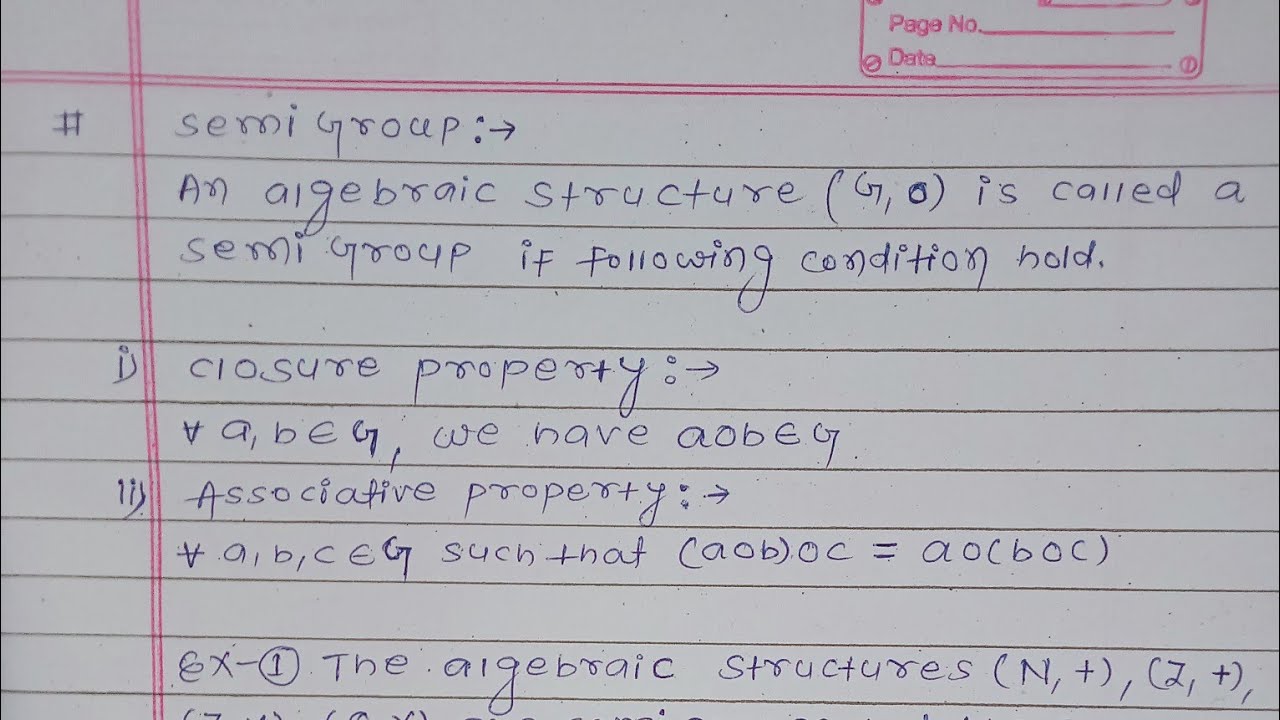 Page No.
Date
# semi Group:→
An algebraic structure (G, o) is called a
semi Group if following condition hold.
i) closure property:→
∀ a, b ∈ G, we have aob ∈ G
ii) Associative property:→
∀ a, b, c ∈ G such that (aob)oc = ao(boc)
Ex-① The algebraic structures (N, +), (Z, +),